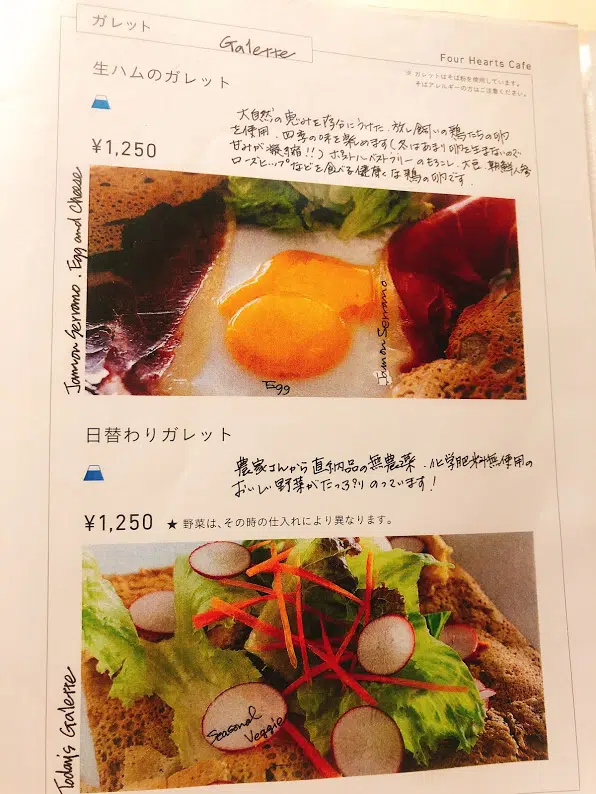 ガレット
Galette
Four Hearts Cafe
※ ガレットはそば粉を使用しています。
そばアレルギーの方はご注意ください。
生ハムのガレット
¥1,250
大自然の恵みを存分にうけた、放し飼いの鶏たちの卵
を使用。四季の味を楽しめます(冬はあまり卵を生まないので
甘みが凝縮!!)ポストハーベストフリーのもろこし、大豆、朝鮮人参
ローズヒップなどを食べる健康な鶏の卵です。
Jamon Serrano. Egg and Cheese
Egg
Jamon Serrano
日替わりガレット
農家さんから直納品の無農薬、化学肥料無使用の
おいしい野菜がたっぷりのっています!
¥1,250
★ 野菜は、その時の仕入れにより異なります。
Today's Galette
Seasonal
Veggie